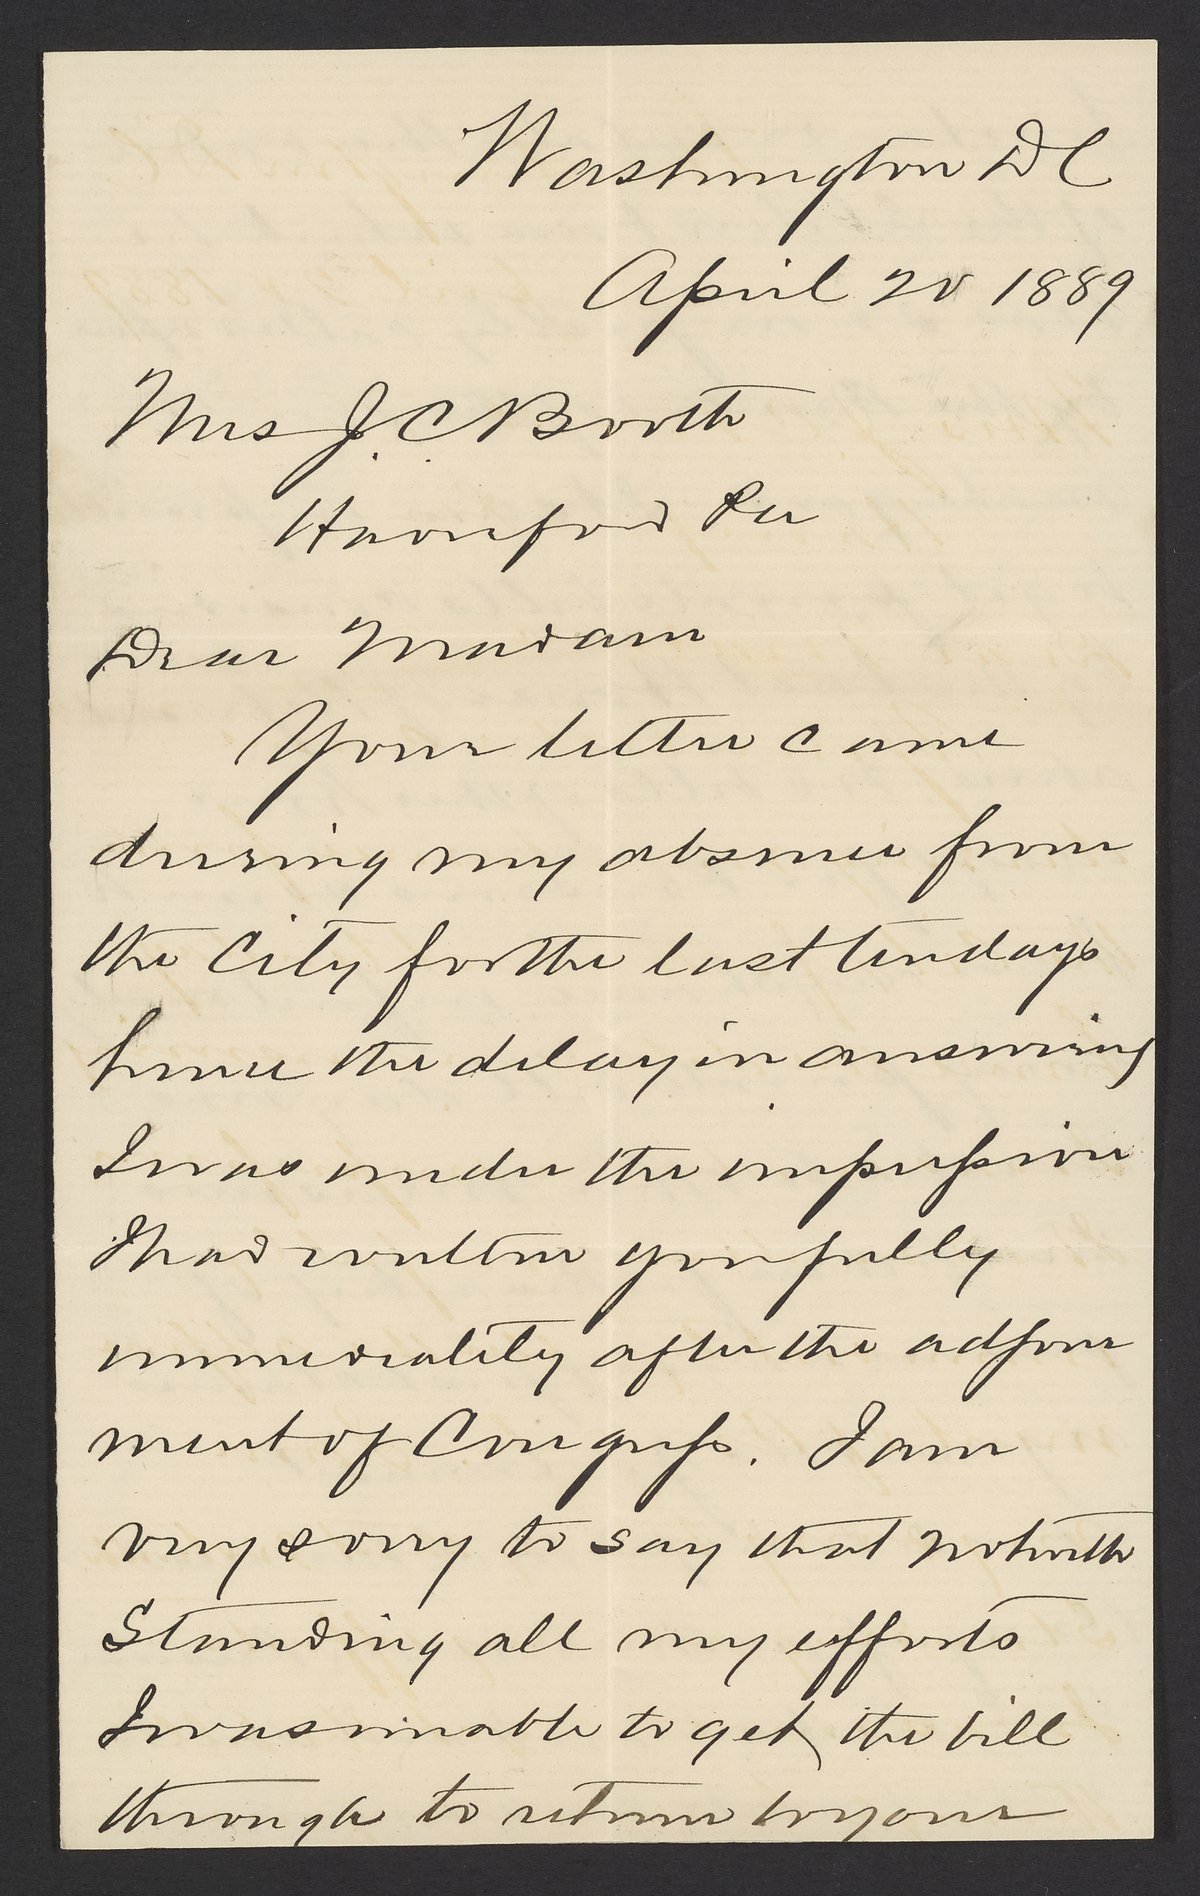 Washington DC
April 20 1889
Mrs J. C. Booth
Haverford Pa
Dear Madam
Your letter came
during my absence from
the City for the last ten days
hence the delay in answering
I was under the impression
I had written you fully
immediately after the adjourn
ment of Congress. I am
very sorry to say that notwith
Standing all my efforts
I was unable to get the bill
through to return to your